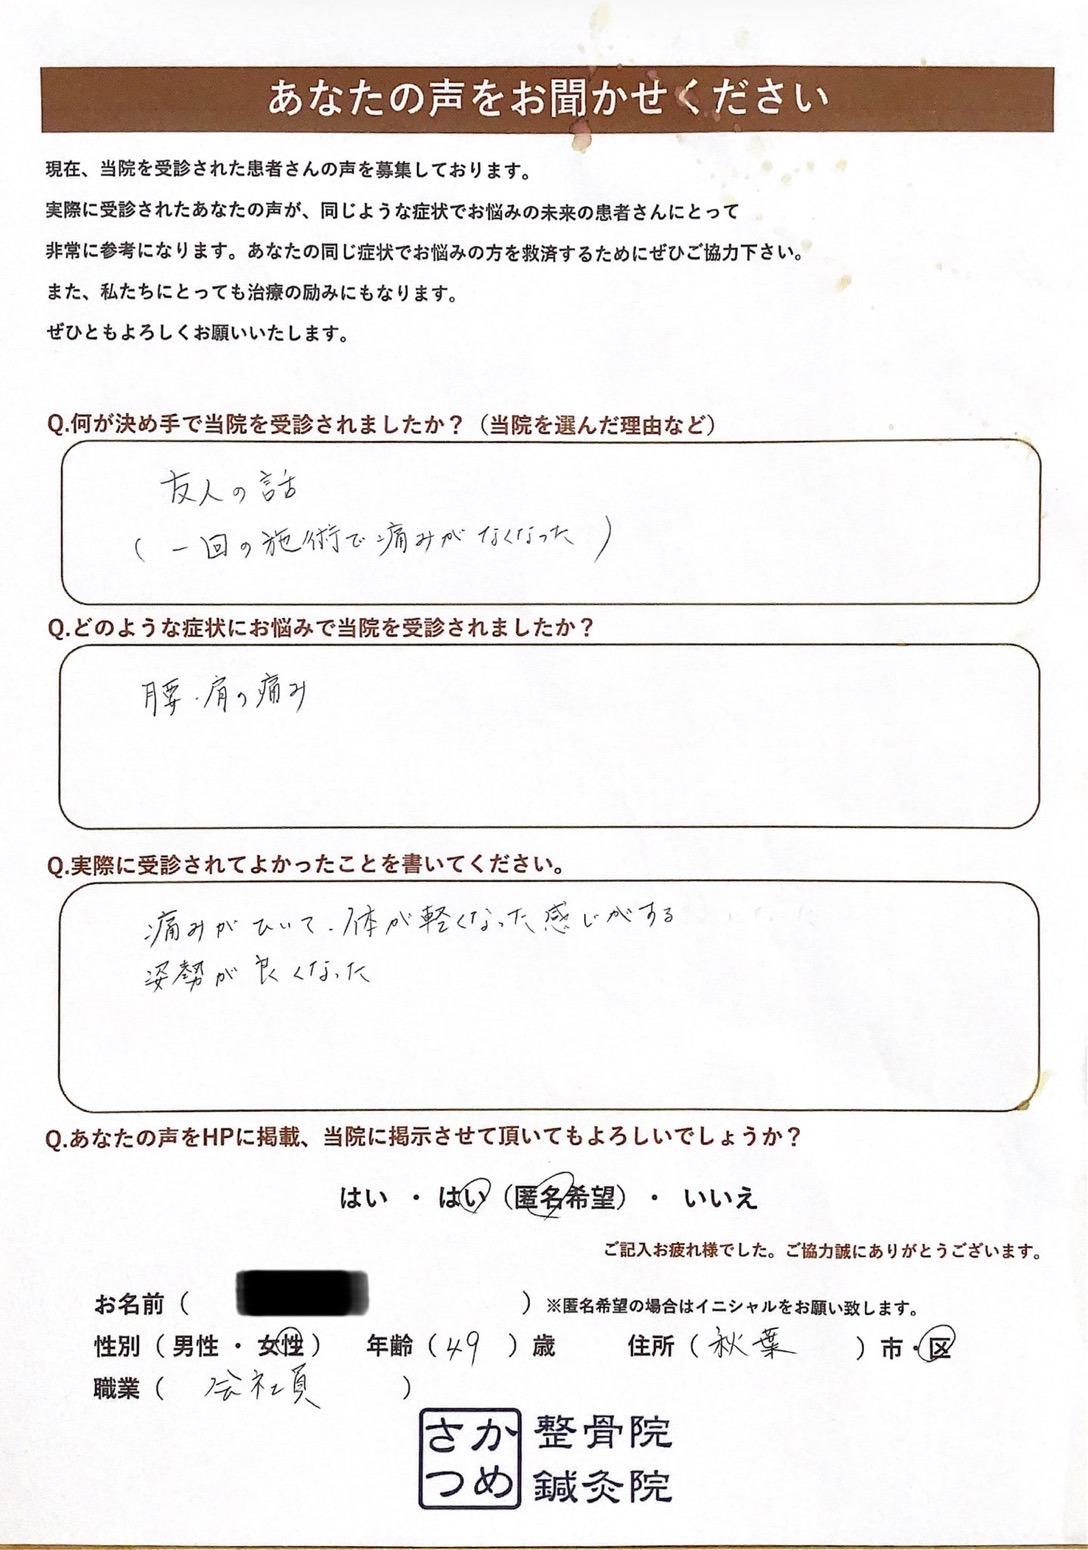 あなたの声をお聞かせください
現在、当院を受診された患者さんの声を募集しております。
実際に受診されたあなたの声が、同じような症状でお悩みの未来の患者さんにとって
非常に参考になります。あなたの同じ症状でお悩みの方を救済するためにぜひご協力下さい。
また、私たちにとっても治療の励みにもなります。
ぜひともよろしくお願いいたします。
Q.何が決め手で当院を受診されましたか？（当院を選んだ理由など）
友人の話
(一回の施術で痛みがなくなった)
Q.どのような症状にお悩みで当院を受診されましたか？
腰・肩の痛み
Q.実際に受診されてよかったことを書いてください。
痛みがひいて、体が軽くなった感じがする
姿勢が良くなった
Q.あなたの声をHPに掲載、当院に掲示させて頂いてもよろしいでしょうか？
はい ・ はい（匿名希望）・ いいえ
ご記入お疲れ様でした。ご協力誠にありがとうございます。
お名前（ ）※匿名希望の場合はイニシャルをお願い致します。
性別（男性・女性） 年齢（49）歳 住所（秋葉）市・区
職業（会社員）
さかつめ 整骨院
鍼灸院